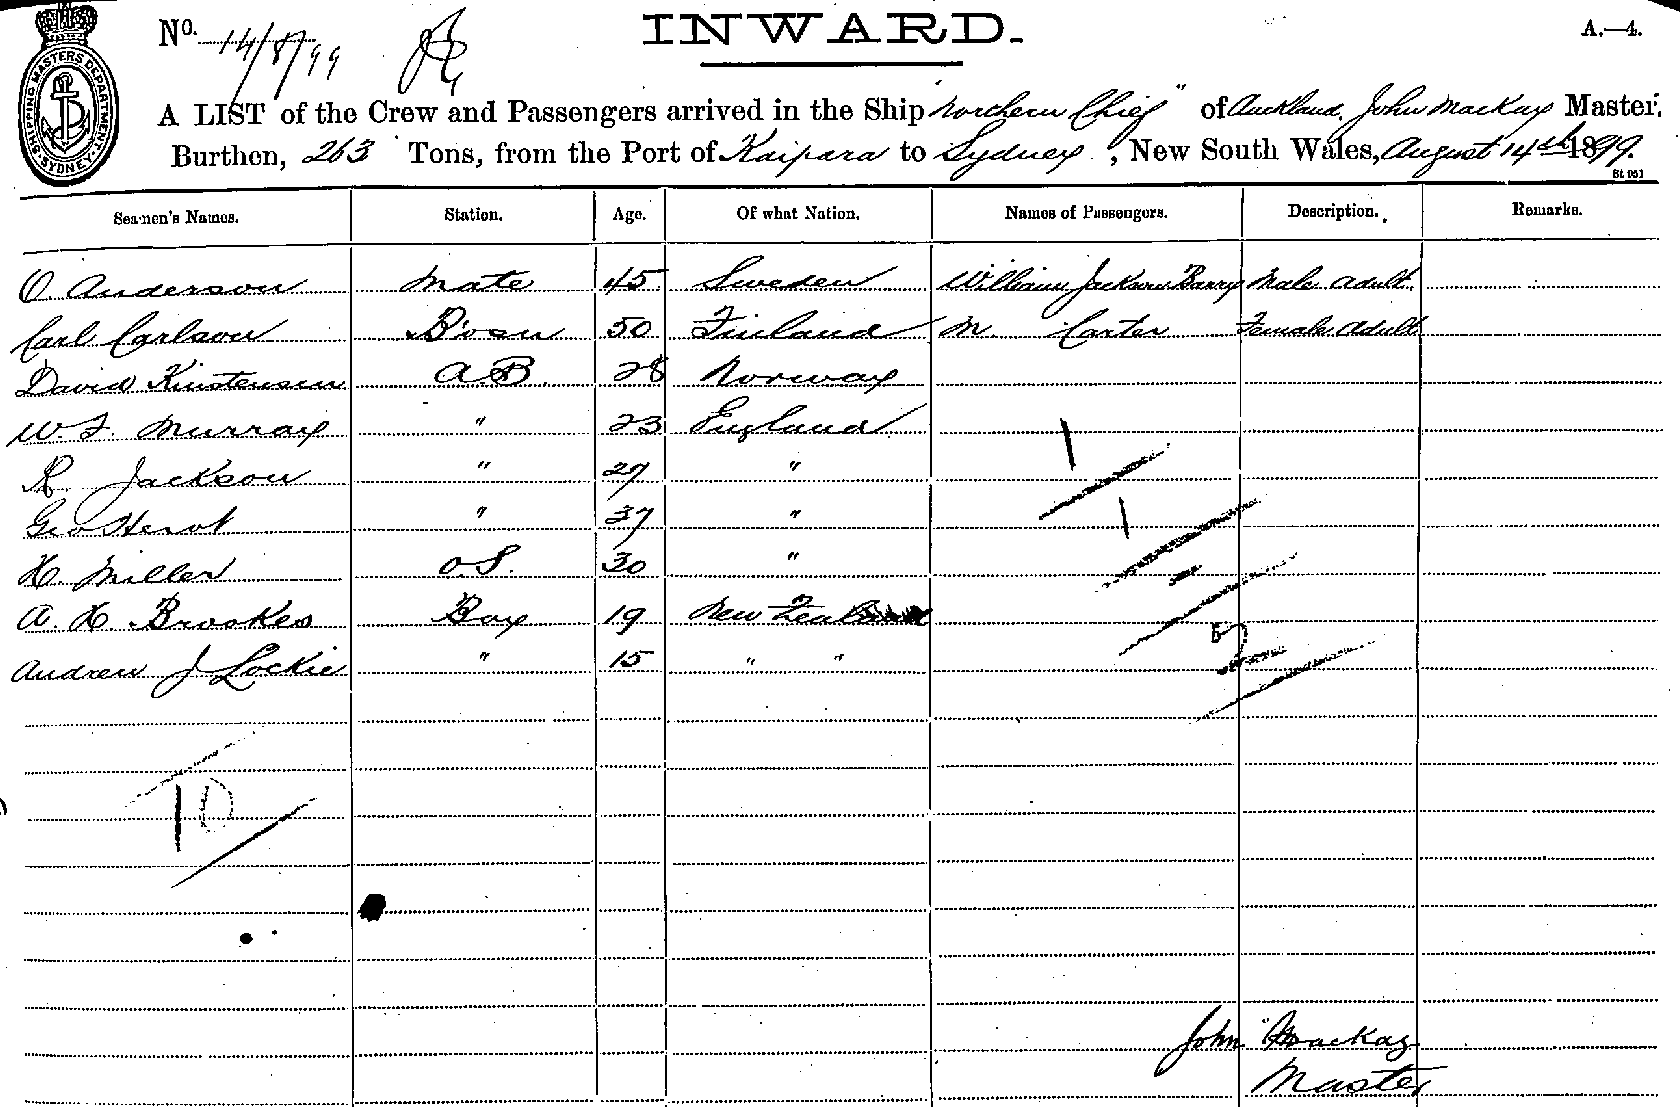 No. 14/8/99
INWARD.
A.—4.
SHIPPING MASTERS DEPARTMENT. SYDNEY
A LIST of the Crew and Passengers arrived in the Ship "Northern Chief" of Auckland, John Mackay Master.
Burthen, 263 Tons, from the Port of Kaipara to Sydney, New South Wales, August 14th 1899.
Seamen's Names. Station. Age. Of what Nation. Names of Passengers. Description. Remarks.
O. Anderson Mate 45 Sweden William Jackson Barry Male adult
Carl Carlson Bosn 50 Finland M. Carter Female adult
David Kirstensen A.B. 28 Norway
W. F. Murray " 23 England
Jackson " "
Geo " 37 "
H. Miller O.S. 30 "
A. H. Brookes Boy 19 New Zealand
Andrew J Lockie " 15 " "
1
1
-
2
10
John Mackay
Master